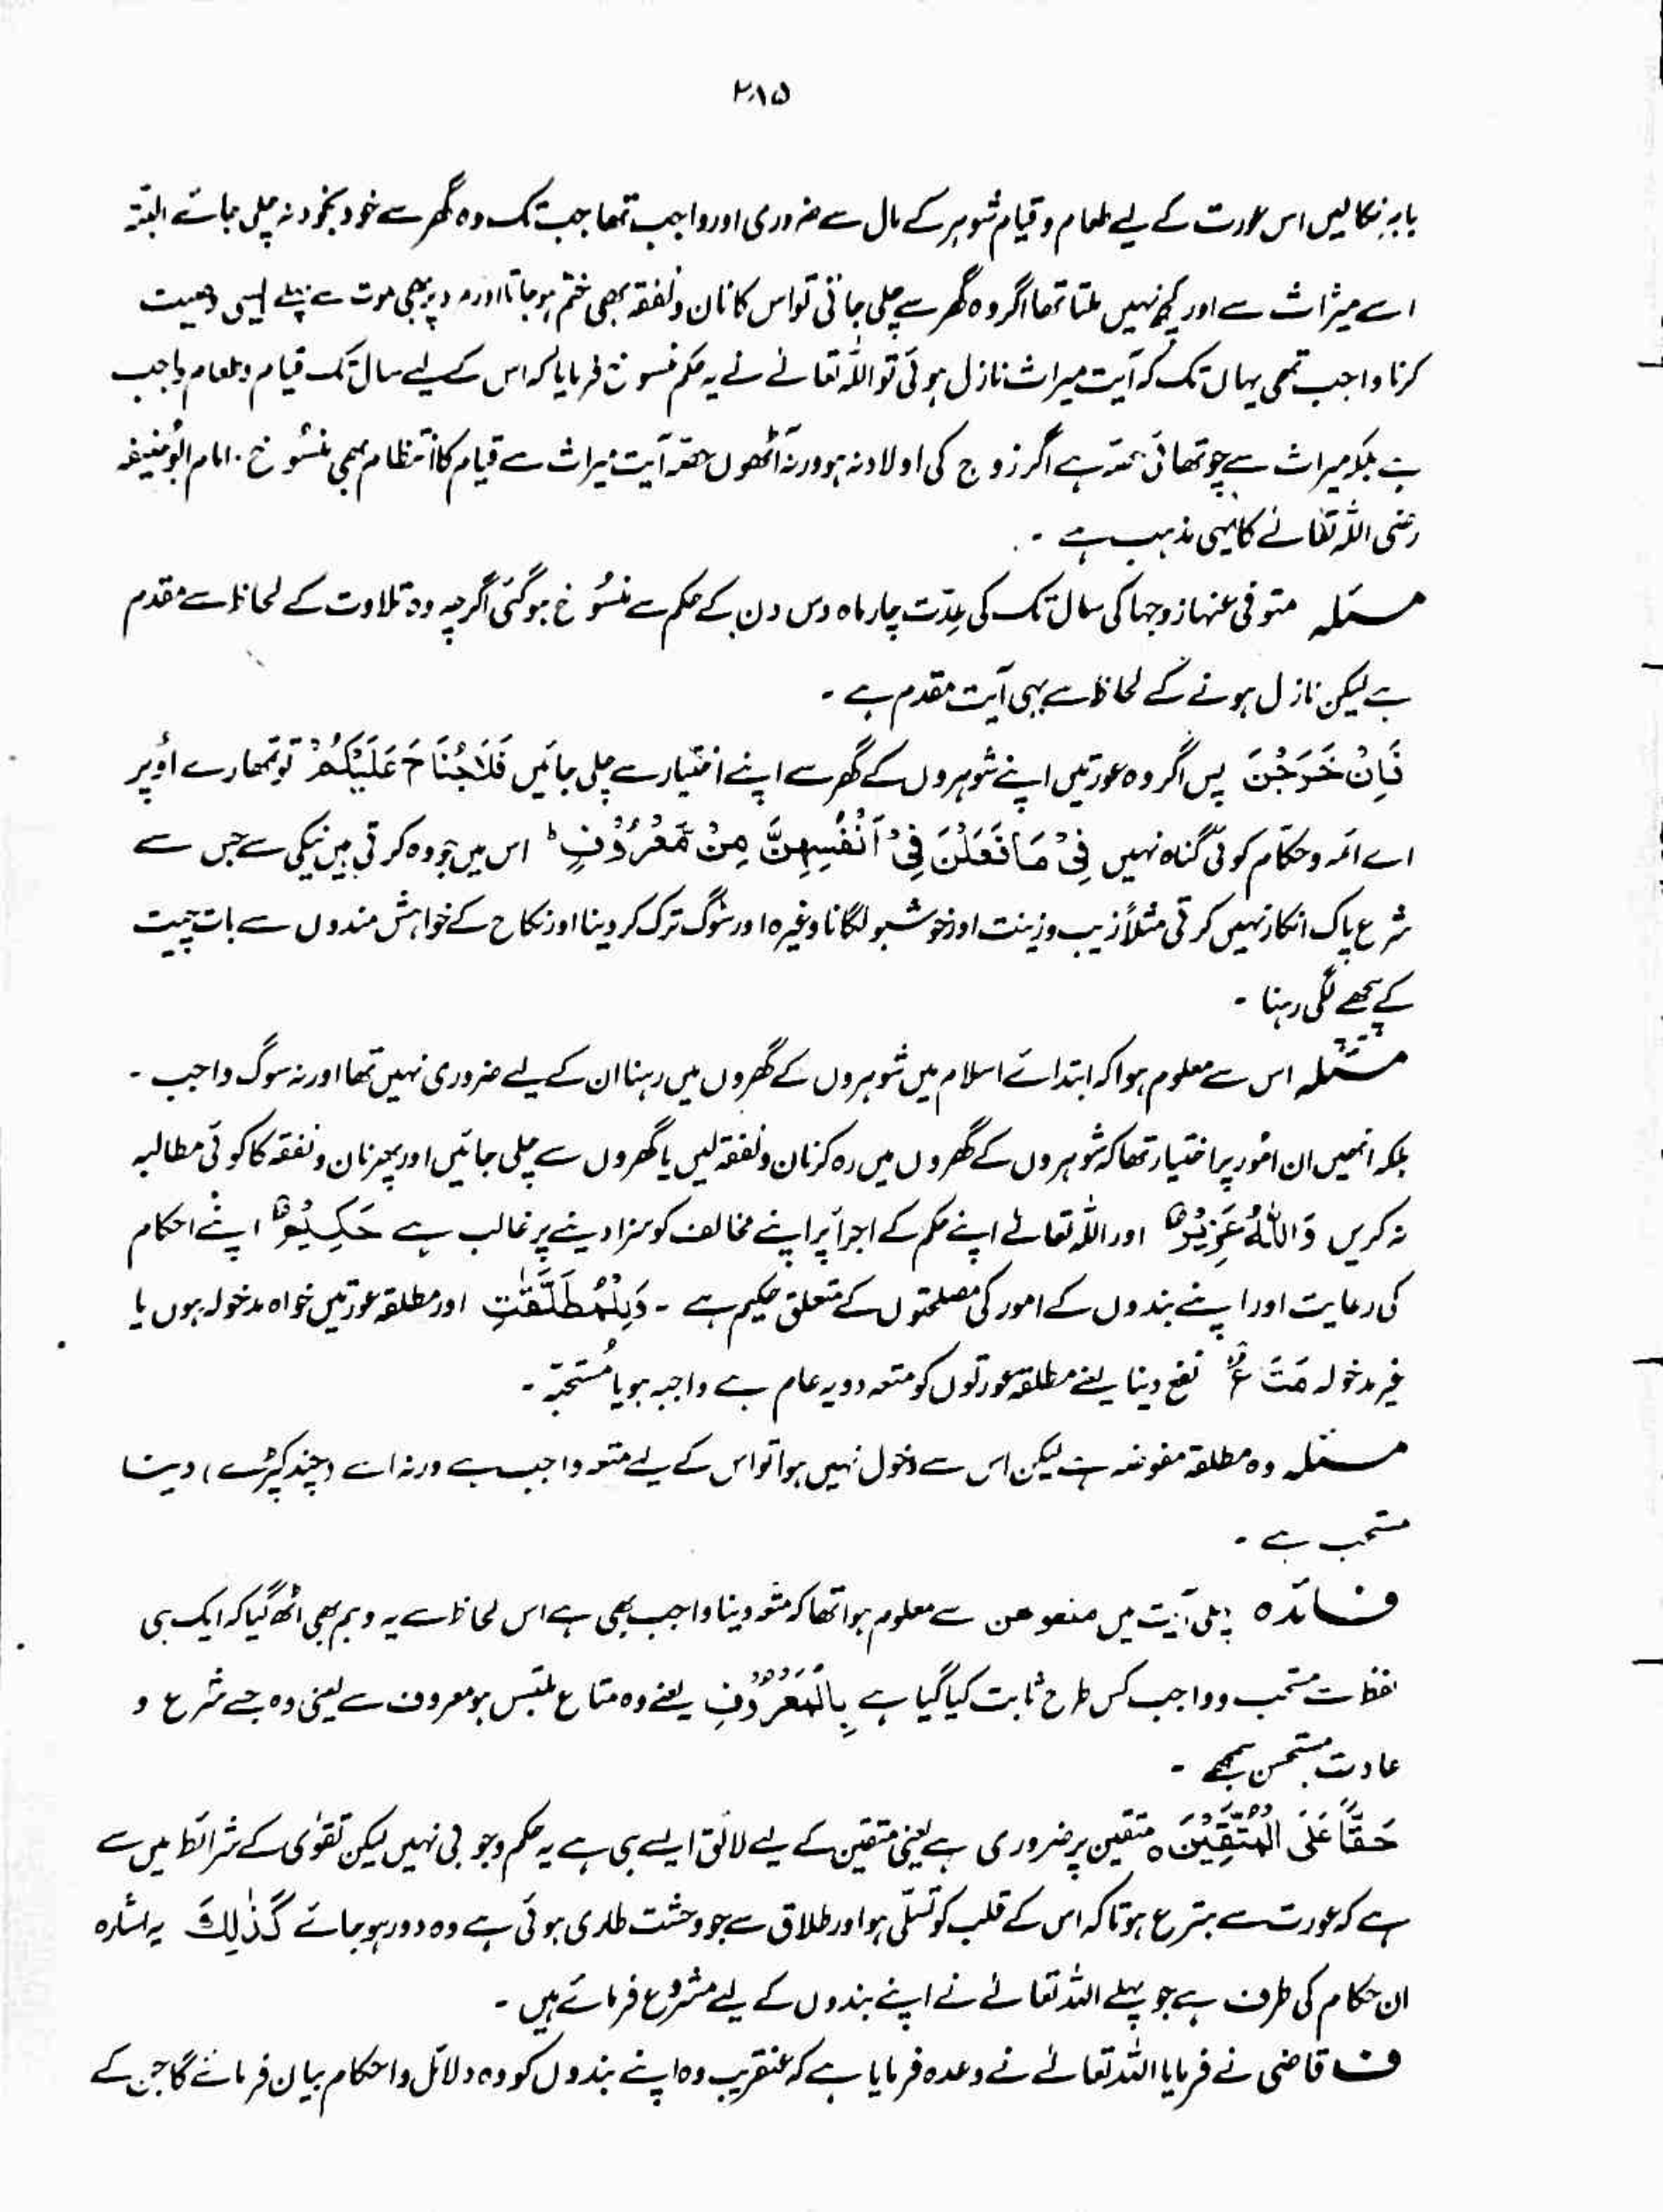 ۲۸۵
باہر نکالیں اس عورت کے لیے طعام و قیام شوہر کے مال سے ضروری اور واجب تھا جب تک وہ گھر سے خود بخود نہ چلی جائے البتہ
اسے میراث سے اور کچھ نہیں ملتا تھا اگر وہ گھر سے چلی جاتی تو اس کا نان و نفقہ بھی ختم ہو جاتا اور مرد پر بھی موت سے پہلے ایسی وصیت
کرنا واجب تھی یہاں تک کہ آیت میراث نازل ہوئی تو اللہ تعالےٰ نے یہ حکم منسوخ فرمایا کہ اس کے لیے سال تک قیام و طعام واجب
ہے بلکہ میراث سے چوتھائی حصّہ ہے اگر زوج کی اولاد نہ ہو ورنہ آٹھوں حصّہ آیت میراث سے قیام کا انتظام بھی منسُوخ۔ امام ابُوحنیفہ
رضی اللہ تعالےٰ کا یہی مذہب ہے ۔
مسئلہ متوفی عنہا زوجہا کی سال تک کی عِدّت چار ماہ دس دن کے حکم سے منسُوخ ہو گئی اگرچہ وہ تلاوت کے لحاظ سے مقدم
ہے لیکن نازل ہونے کے لحاظ سے یہی آیت مقدم ہے ۔
فَاِنْ خَرَجْنَ پس اگر وہ عورتیں اپنے شوہروں کے گھر سے اپنے اختیار سے چلی جائیں فَلَاجُنَاحَ عَلَيْكُمْ تو تمھارے اُوپر
اے ائمہ و حکّام کوئی گناہ نہیں فِىْ مَا فَعَلْنَ فِىْٓ اَنْفُسِهِنَّ مِنْ مَّعْرُوْفٍ ؕ اس میں جو وہ کرتی ہیں نیکی سے جس سے
شرع پاک انکار نہیں کرتی مثلاً زیب و زینت اور خوشبو لگانا وغیرہ اور سوگ ترک کر دینا اور نکاح کے خواہش مندوں سے بات چیت
کے پیچھے لگی رہنا ۔
مسئلہ اس سے معلوم ہوا کہ ابتدائے اسلام میں شوہروں کے گھروں میں رہنا ان کے لیے ضروری نہیں تھا اور نہ سوگ واجب ۔
بلکہ انھیں ان امُور پر اختیار تھا کہ شوہروں کے گھروں میں رہ کر نان و نفقہ لیں یا گھروں سے چلی جائیں اور پھر نان و نفقہ کا کوئی مطالبہ
نہ کریں وَاللّٰهُ عَزِيْزٌ اور اللہ تعالےٰ اپنے حکم کے اجرأ پر اپنے مخالف کو سزا دینے پر غالب ہے حَكِيْمٌ اپنے احکام
کی رعایت اور اپنے بندوں کے امور کی مصلحتوں کے متعلق حکیم ہے ۔ وَلِلْمُطَلَّقٰتِ اور مطلقہ عورتیں خواہ مدخولہ ہوں یا
غیر مدخولہ مَتَاعٌ نفع دینا یعنے مطلقہ عورتوں کو متعہ دو یہ عام ہے واجبہ ہو یا مُستحبّہ ۔
مسئلہ وہ مطلقہ مفوضہ ہے لیکن اس سے دخول نہیں ہوا تو اس کے لیے متعہ واجب ہے ورنہ اسے (چند کپڑے) دینا
مستحب ہے ۔
فائدہ پہلی آیت میں متعوھن سے معلوم ہوا تھا کہ متعہ دینا واجب بھی ہے اس لحاظ سے یہ وہم بھی اٹھ گیا کہ ایک ہی
لفظ سے مستحب و واجب کس طرح ثابت کیا گیا ہے بِالْمَعْرُوْفِ یعنے وہ متاع ملتبس ہو معروف سے یعنی وہ جسے شرع و
عادت مستحسن سمجھے ۔
حَقًّا عَلَى الْمُتَّقِيْنَ ہ متقین پر ضروری ہے یعنی متقین کے لیے لائق ایسے ہی ہے یہ حکم وجوبی نہیں لیکن تقوٰی کے شرائط میں سے
ہے کہ عورت سے تبرع ہو تا کہ اس کے قلب کو تسلّی ہو اور طلاق سے جو وحشت طاری ہوئی ہے وہ دور ہو جائے كَذٰلِكَ یہ اشارہ
ان احکام کی طرف ہے جو پہلے اللہ تعالےٰ نے اپنے بندوں کے لیے مشروع فرمائے ہیں ۔
ف قاضی نے فرمایا اللہ تعالےٰ نے وعدہ فرمایا ہے کہ عنقریب وہ اپنے بندوں کو وہ دلائل و احکام بیان فرمائے گا جن کے